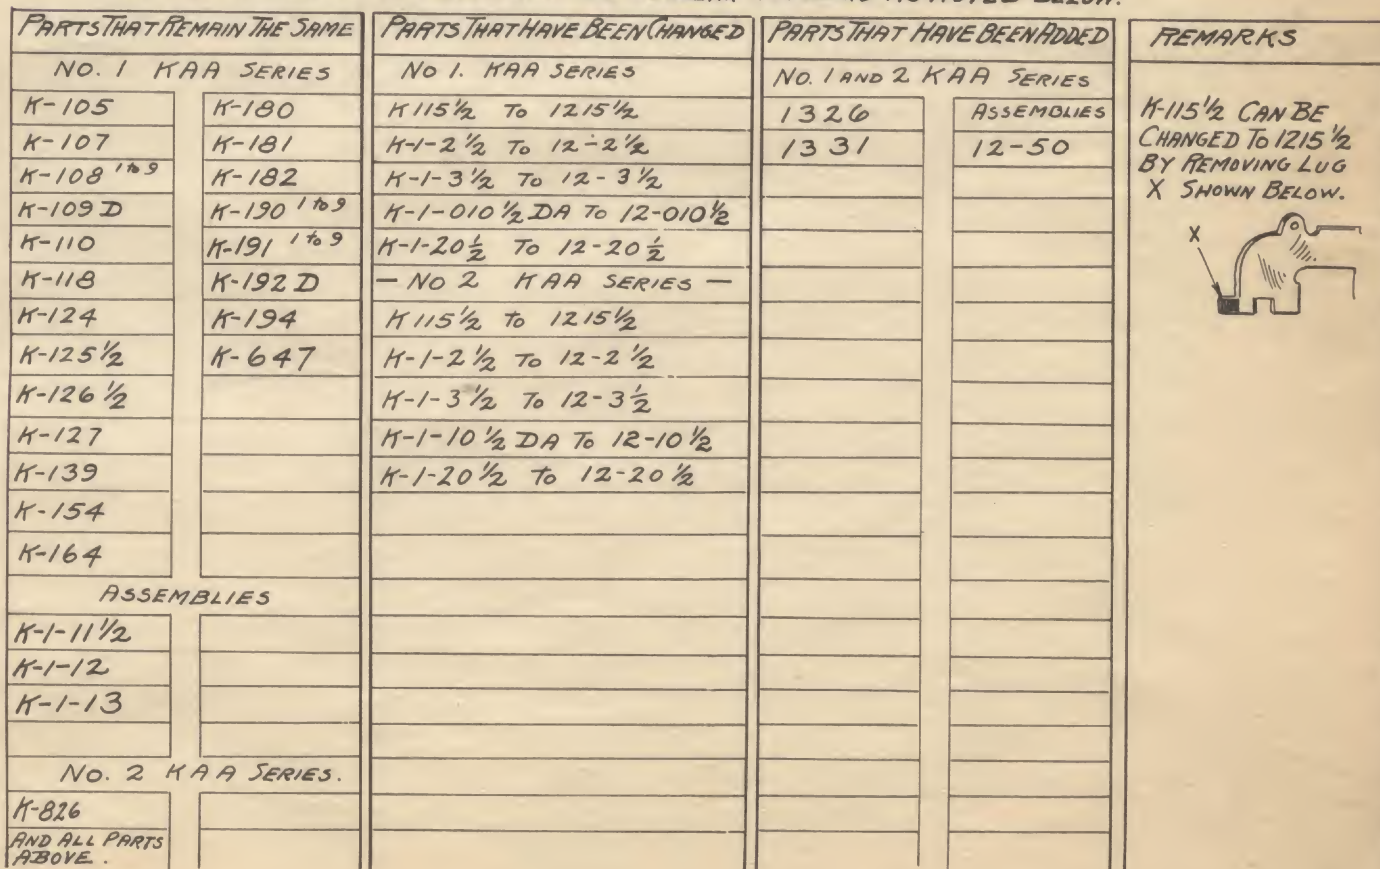 BELOW.
PARTS THAT REMAIN THE SAME
NO. 1 KAA SERIES
K-105 K-180
K-107 K-181
K-108 1 to 9 K-182
K-109 D K-190 1 to 9
K-110 K-191 1 to 9
K-118 K-192 D
K-124 K-194
K-125½ K-647
K-126½
K-127
K-139
K-154
K-164
ASSEMBLIES
K-1-11½
K-1-12
K-1-13
NO. 2 KAA SERIES.
K-826
AND ALL PARTS
ABOVE.
PARTS THAT HAVE BEEN CHANGED
NO 1. KAA SERIES
K115½ TO 1215½
K-1-2½ TO 12-2½
K-1-3½ TO 12-3½
K-1-010½ DA TO 12-010½
K-1-20½ TO 12-20½
- NO 2 KAA SERIES -
K115½ TO 1215½
K-1-2½ TO 12-2½
K-1-3½ TO 12-3½
K-1-10½ DA TO 12-10½
K-1-20½ TO 12-20½
PARTS THAT HAVE BEEN ADDED
NO. 1 AND 2 KAA SERIES
1326 ASSEMBLIES
1331 12-50
REMARKS
K-115½ CAN BE
CHANGED TO 1215½
BY REMOVING LUG
X SHOWN BELOW.
X